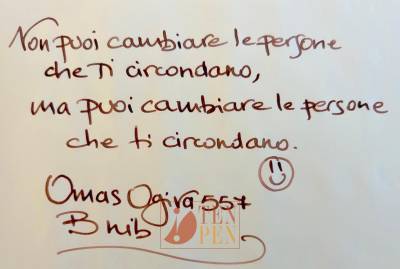 Non puoi cambiare le persone
che Ti circondano,
ma puoi cambiare le persone
che ti circondano.
Omas Ogiva 557
B nib
TEN
PEN